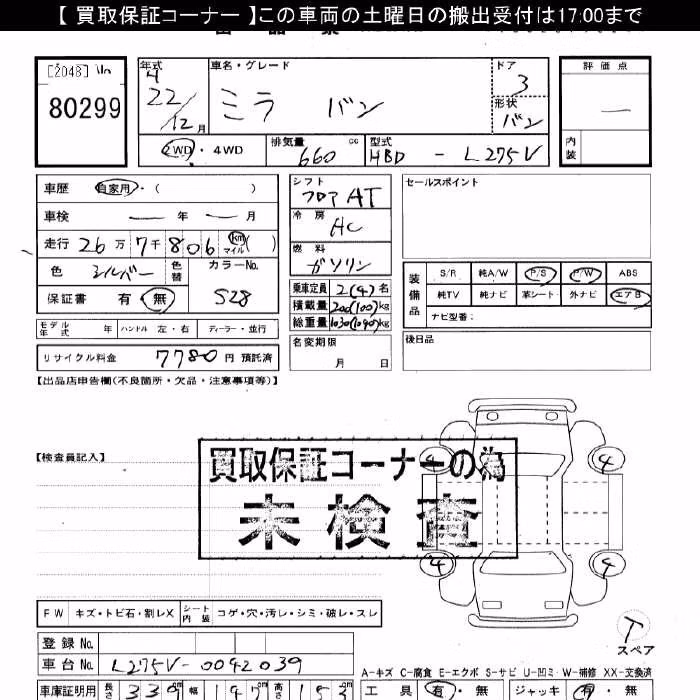 【 買取保証コーナー 】この車両の土曜日の搬出受付は17:00まで
[2048]
80299
年式 22/12月
車名・グレード ミラ バン
ドア 3
形状 バン
評価点 —
内装
2WD・4WD
排気量 660 cc
型式 HBD - L275V
車歴 自家用・( )
車検 — 年 — 月
走行 26万7千806 km マイル ( )
色 シルバー 色替 カラーNo. S28
保証書 有・無
シフト フロア AT
冷房 AC
燃料 ガソリン
乗車定員 2(4)名
積載量 200(100)kg
総重量 1030(1040)kg
名変期限 月 日
セールスポイント
装備品
S/R 純A/W P/S P/W ABS
純TV 純ナビ 革シート 外ナビ エアB
ナビ型番:
後日品
モデル年式 年 ハンドル 左・右 ディーラー・並行
リサイクル料金 7780 円 預託済
【出品店申告欄(不良箇所・欠品・注意事項等)】
【検査員記入】
買取保証コーナーの為
未検査
4 4
4 4
T
スペア
FW キズ・トビ石・割レX シート内装 コゲ・穴・汚レ・シミ・破レ・スレ
登録 No.
車台 No. L275V-0042039
A-キズ C-腐食 E-エクボ S-サビ U-凹ミ W-補修 XX-交換済
車庫証明用 長さ 339 cm 幅 147 cm 高さ 153 cm
工具 有・無 ジャッキ 有・無